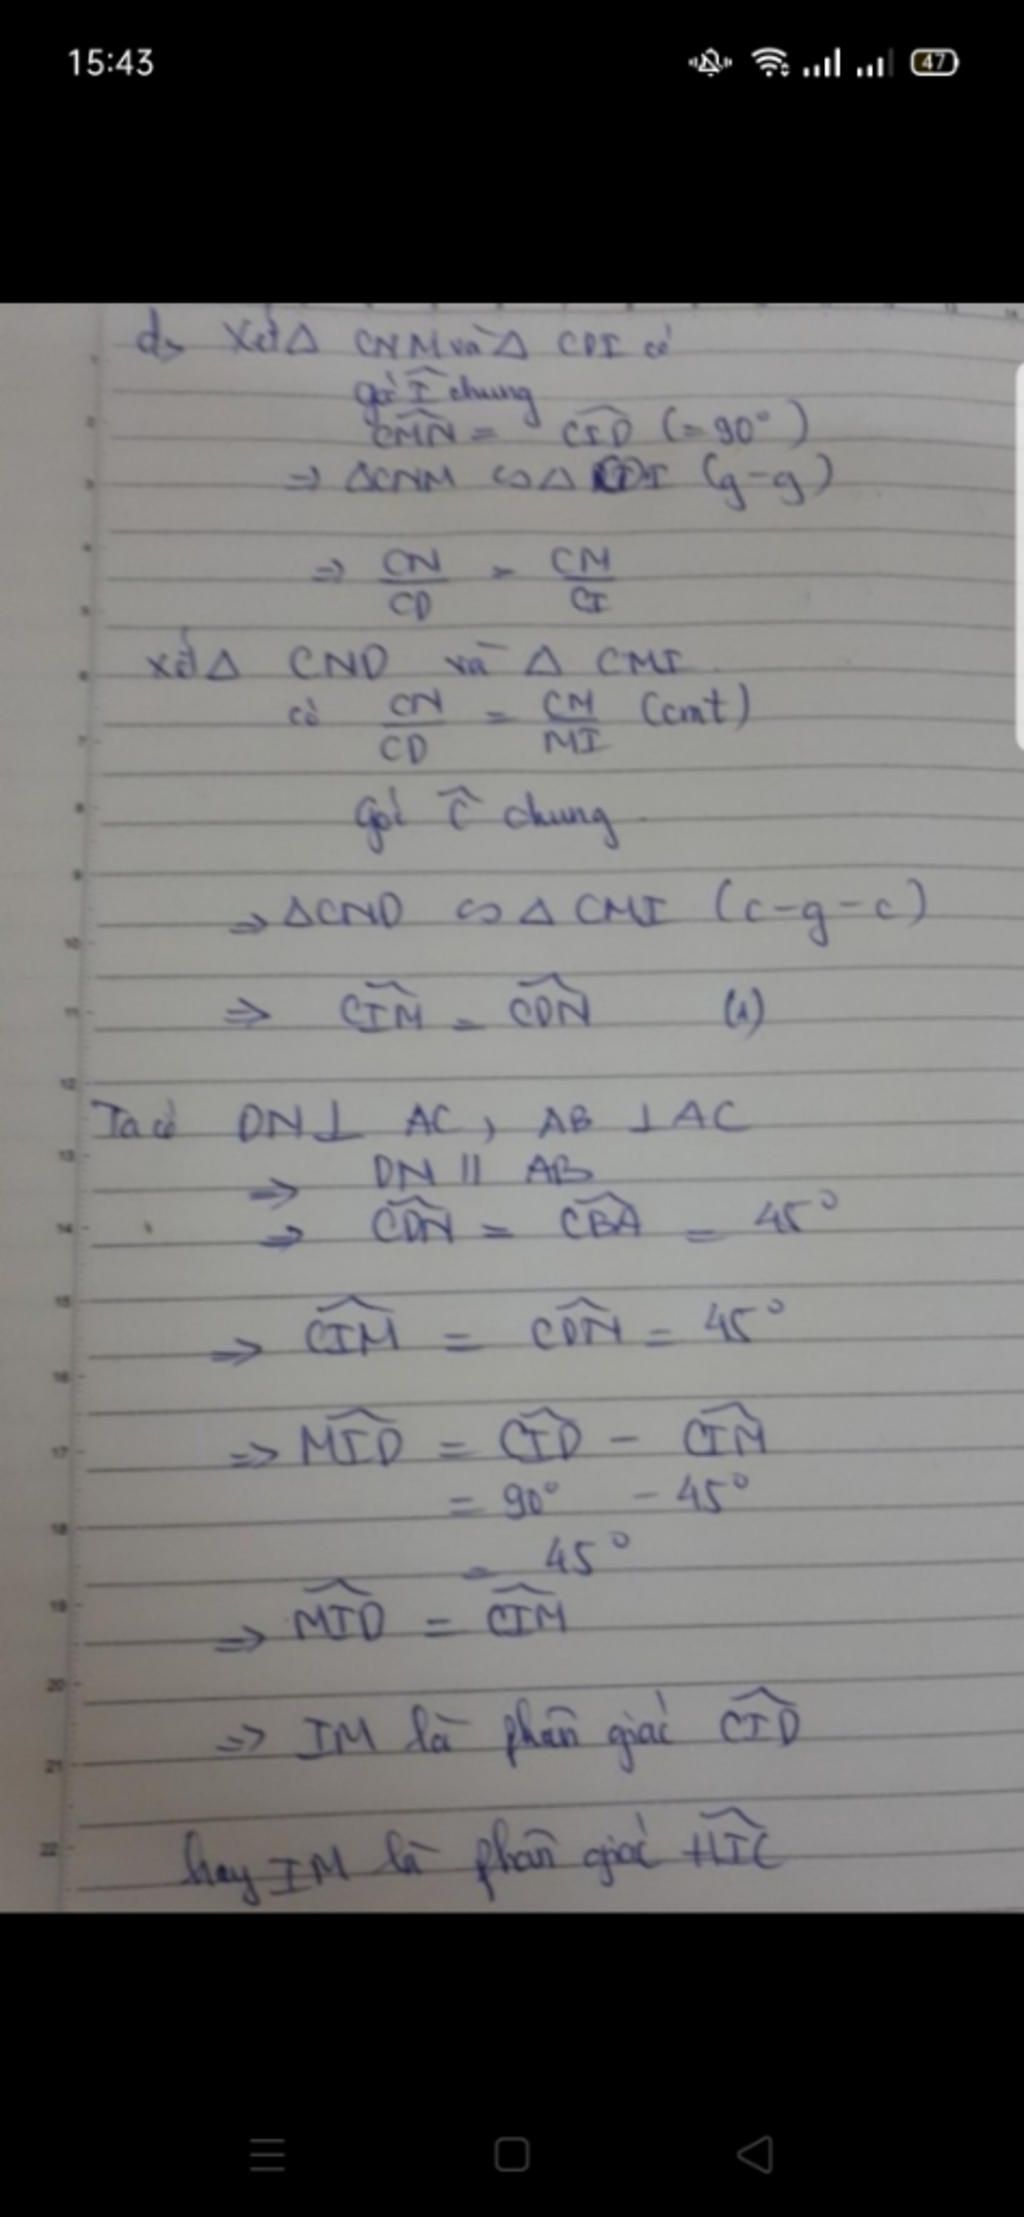 15:43
47
d, Xét Δ CNM và Δ CDI có
góc Î chung
CMN = CID (=90°)
=> ΔCNM ∽ Δ CDI (g-g)
=> CN/CD = CM/CI
xét Δ CND và Δ CMI
có CN/CD = CM/MI (cmt)
góc Ĉ chung
=> ΔCND ∽ Δ CMI (c-g-c)
=> CIM = CDN (1)
Ta có DN ⊥ AC, AB ⊥ AC
=> DN || AB
=> CDN = CBA = 45°
=> CIM = CDN = 45°
=> MID = CID - CIM
= 90° - 45°
= 45°
=> MID = CIM
=> IM là phân giác CID
hay IM là phân giác HIC